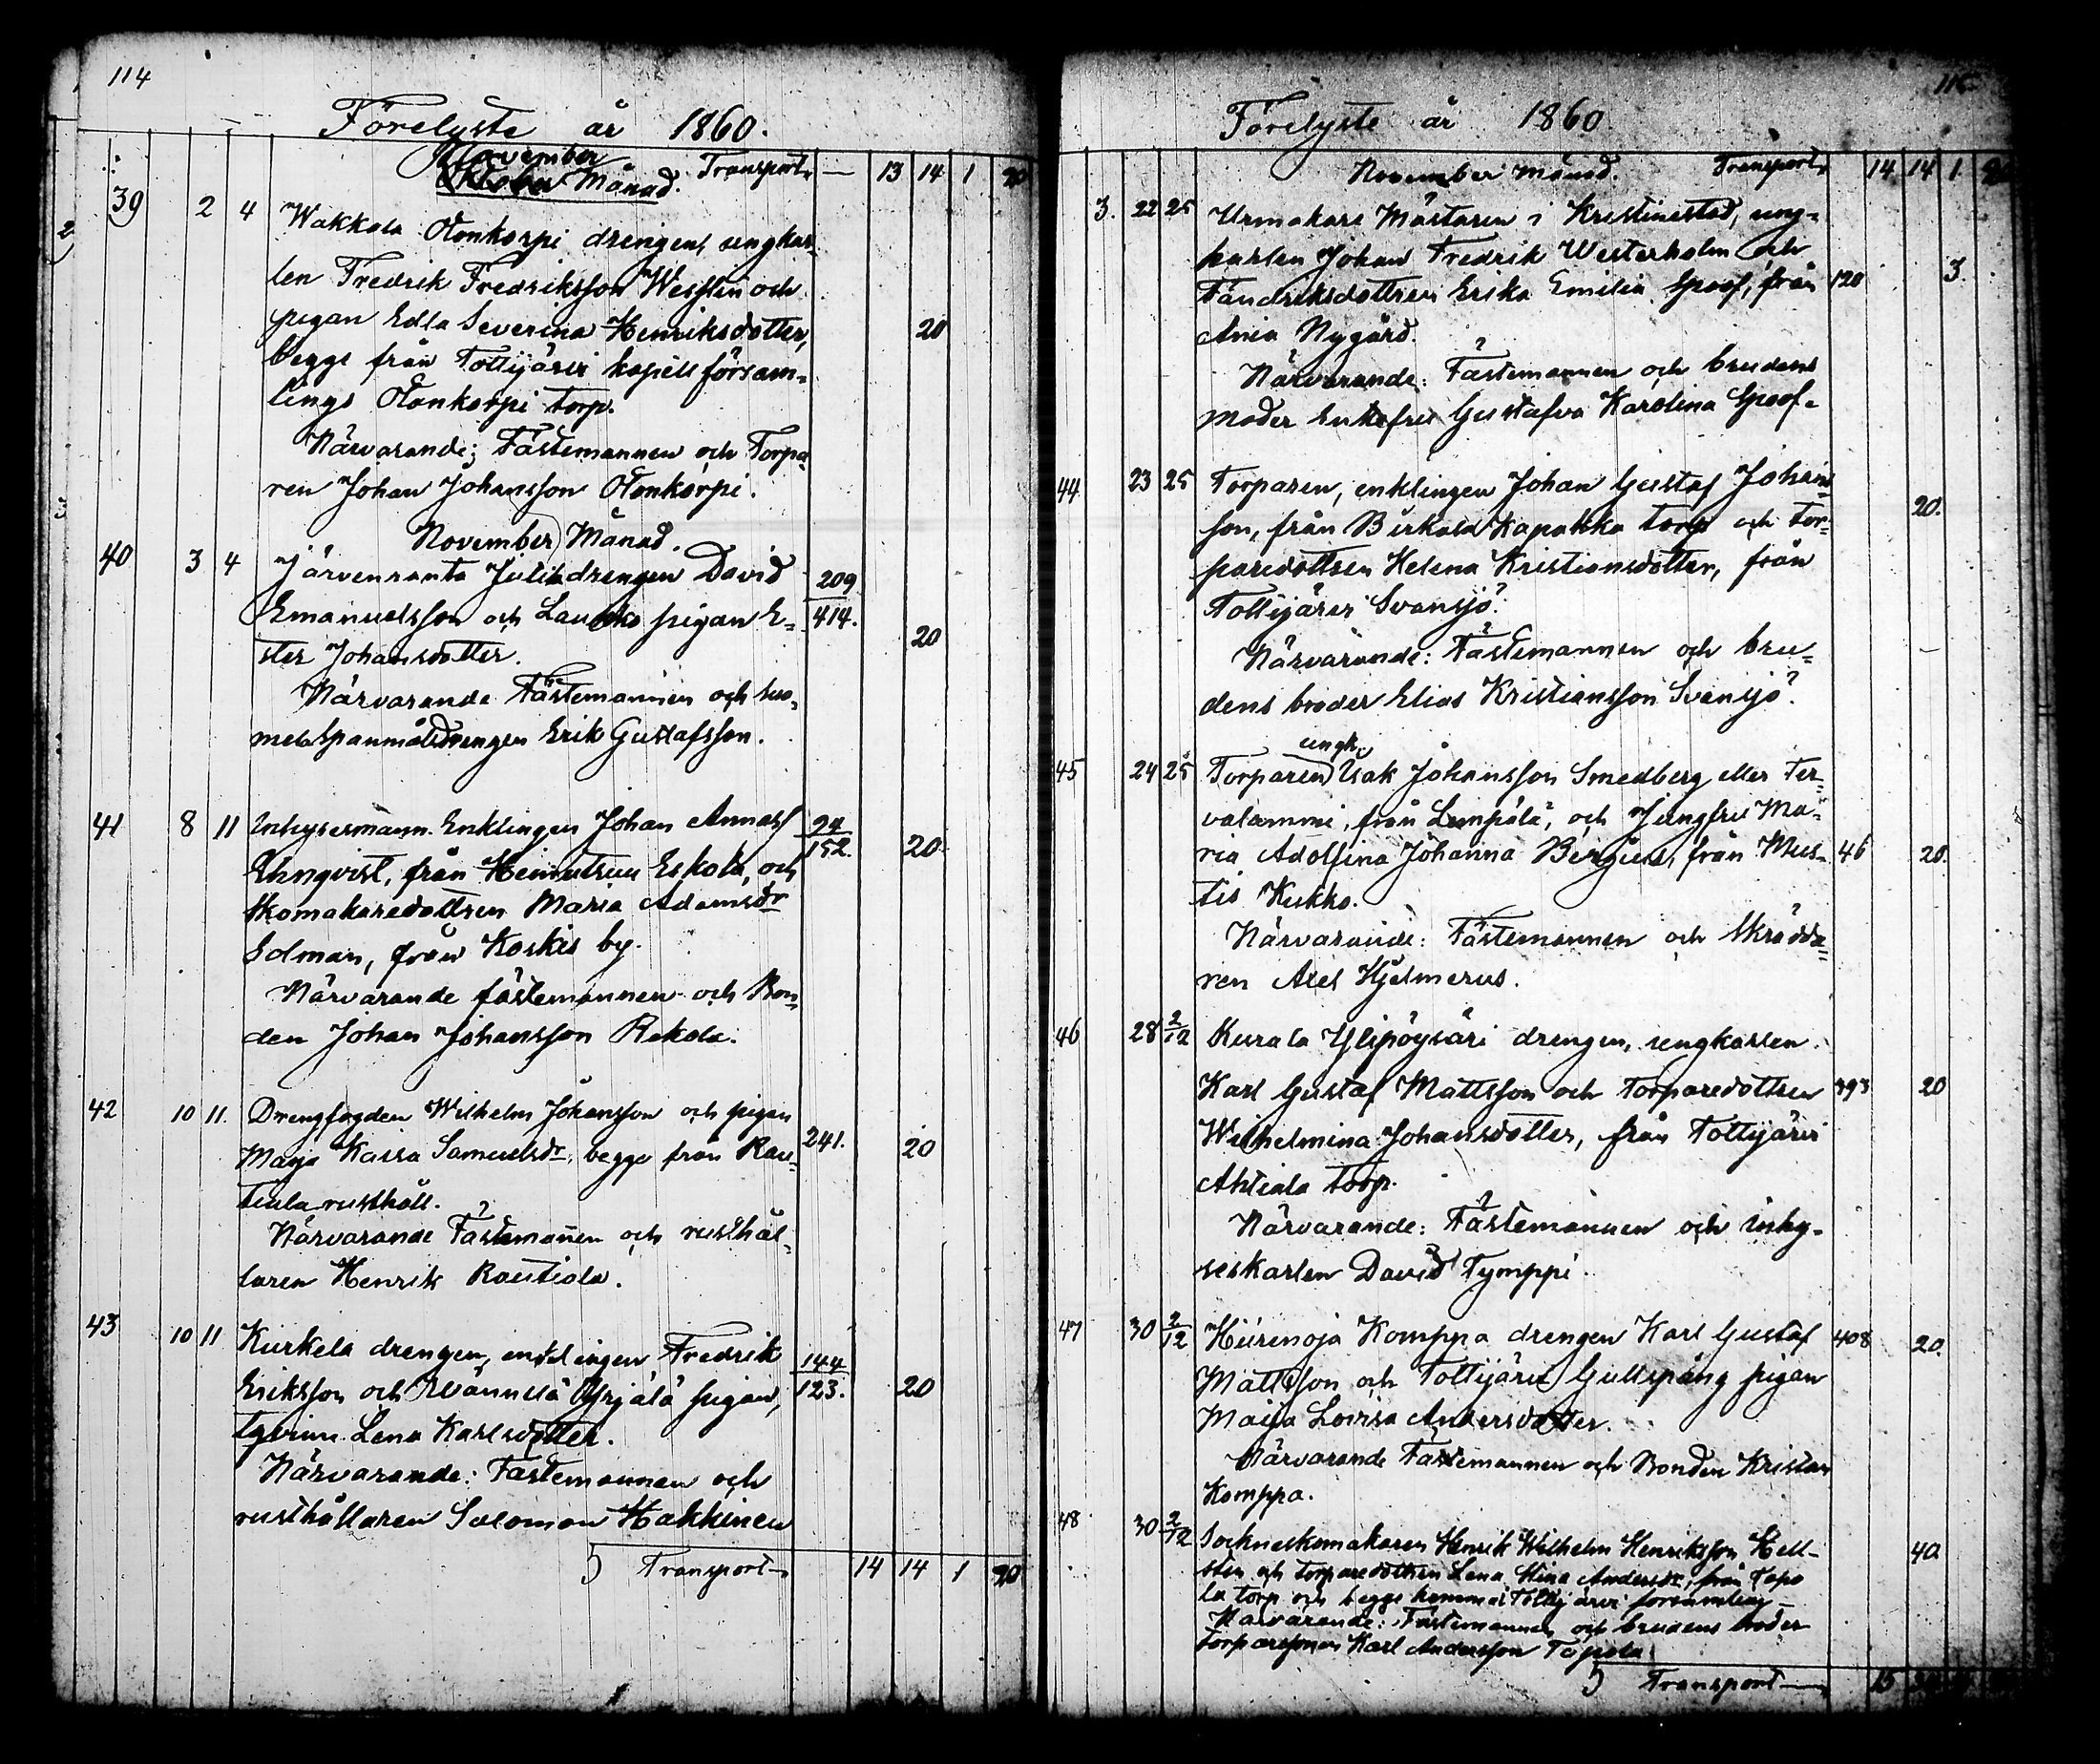 114
Förelyste år 1860.
November
Oktober Månad. Transport — 13 14 1 20
39 2 4 Wakkala Otonkorpi drengen, ungkar-
len Fredrik Fredriksson Wesslin och
pigan Edla Severina Henriksdotter, 20
begge från Tottijärvi kapellförsam-
lings Otonkorpi torp.
Närvarande; Fästemannen och Torpa-
ren Johan Johansson Otonkorpi.
November Månad.
40 3 4 Järvenranta Julita drengen David 209
Emanuelsson och Laukko pigan E- 414.
ster Johansdotter. 20
Närvarande Fästemannen och
Spanmålsdrengen Erik Gustafsson.
41 8 11 Inhysesmann. Enklingen Johan Annass 94
Ehnqvist, från Heinutsuu Eskola, och 152. 20
Skomakaredottren Maria Adamsdr
Edman, från Koskis by.
Närvarande fästemannen och Bon-
den Johan Johansson Rekola.
42 10 11. Drengfogden Wilhelm Johansson och pigan
Maja Kaisa Samuelsdr, begge från Rau- 241. 20
tiala rusthåll.
Närvarande Fästemannen och rusthål-
laren Henrik Rautiala.
43 10 11 Kurkela drengen, enklingen Fredrik 144
Eriksson och Wännilä Yrjälä pigan, 123. 20
Lena Karlsdotter.
Närvarande: Fästemannen och
rusthållaren Salomon Hakkinen
5 Transport 14 14 1 20
115
Förelyste år 1860
November Månad. Transport 14 14 1
3. 22 25 Urmakare Mästaren i Kristinestad, ung-
karlen Johan Fredrik Westerholm och
Fändriksdottren Erika Emilia Spoof, från 120 3.
Ania Nygård.
Närvarande: Fästemannen och brudens
moder Enkefru Gustafva Karolina Spoof.
44 23 25 Torparen, enklingen Johan Gustaf Johans-
son, från Birkala Kapakka torp och Tor- 20.
paredottren Helena Kristiansdotter, från
Tottijärvi Svansjö.
Närvarande: Fästemannen och bru-
dens broder Elias Kristiansson Svansjö.
ungk.
45 24 25 Torparen Isak Johansson Smedberg eller Ter-
valammi, från Lempälä, och Jungfru Ma-
ria Adolfina Johanna Bergius, från Mus- 46 20.
tis Kukko.
Närvarande: Fästemannen och Skrädda-
ren Axel Hjelmerus.
46 28 2/12 Kurala Ylipöysäri drengen, ungkarlen
Karl Gustaf Mattsson och Torparedottren 393 20
Wilhelmina Johansdotter, från Tottijärvi
Ahtiala torp.
Närvarande: Fästemannen och inhy-
seskarlen David Tymppi
47 30 2/12 Hiirenoja Komppa drengen Karl Gustaf 408 20.
Mattsson och Tottijärvi Gullspång pigan
Maija Lovisa Andersdotter.
Närvarande Fästemannen och Bonden Kristian
Komppa.
48 30 2/12 Sockneskomakaren Henrik Wilhelm Henriksson Hell-
sten och torparedottren Lena Stina Andersdr, från Tapo 40
la torp och begge hemma i Tottijärvi församling
Närvarande: Fästemannen och brudens broder
torparesonen Karl Andersson Tapola
5 Transport 15